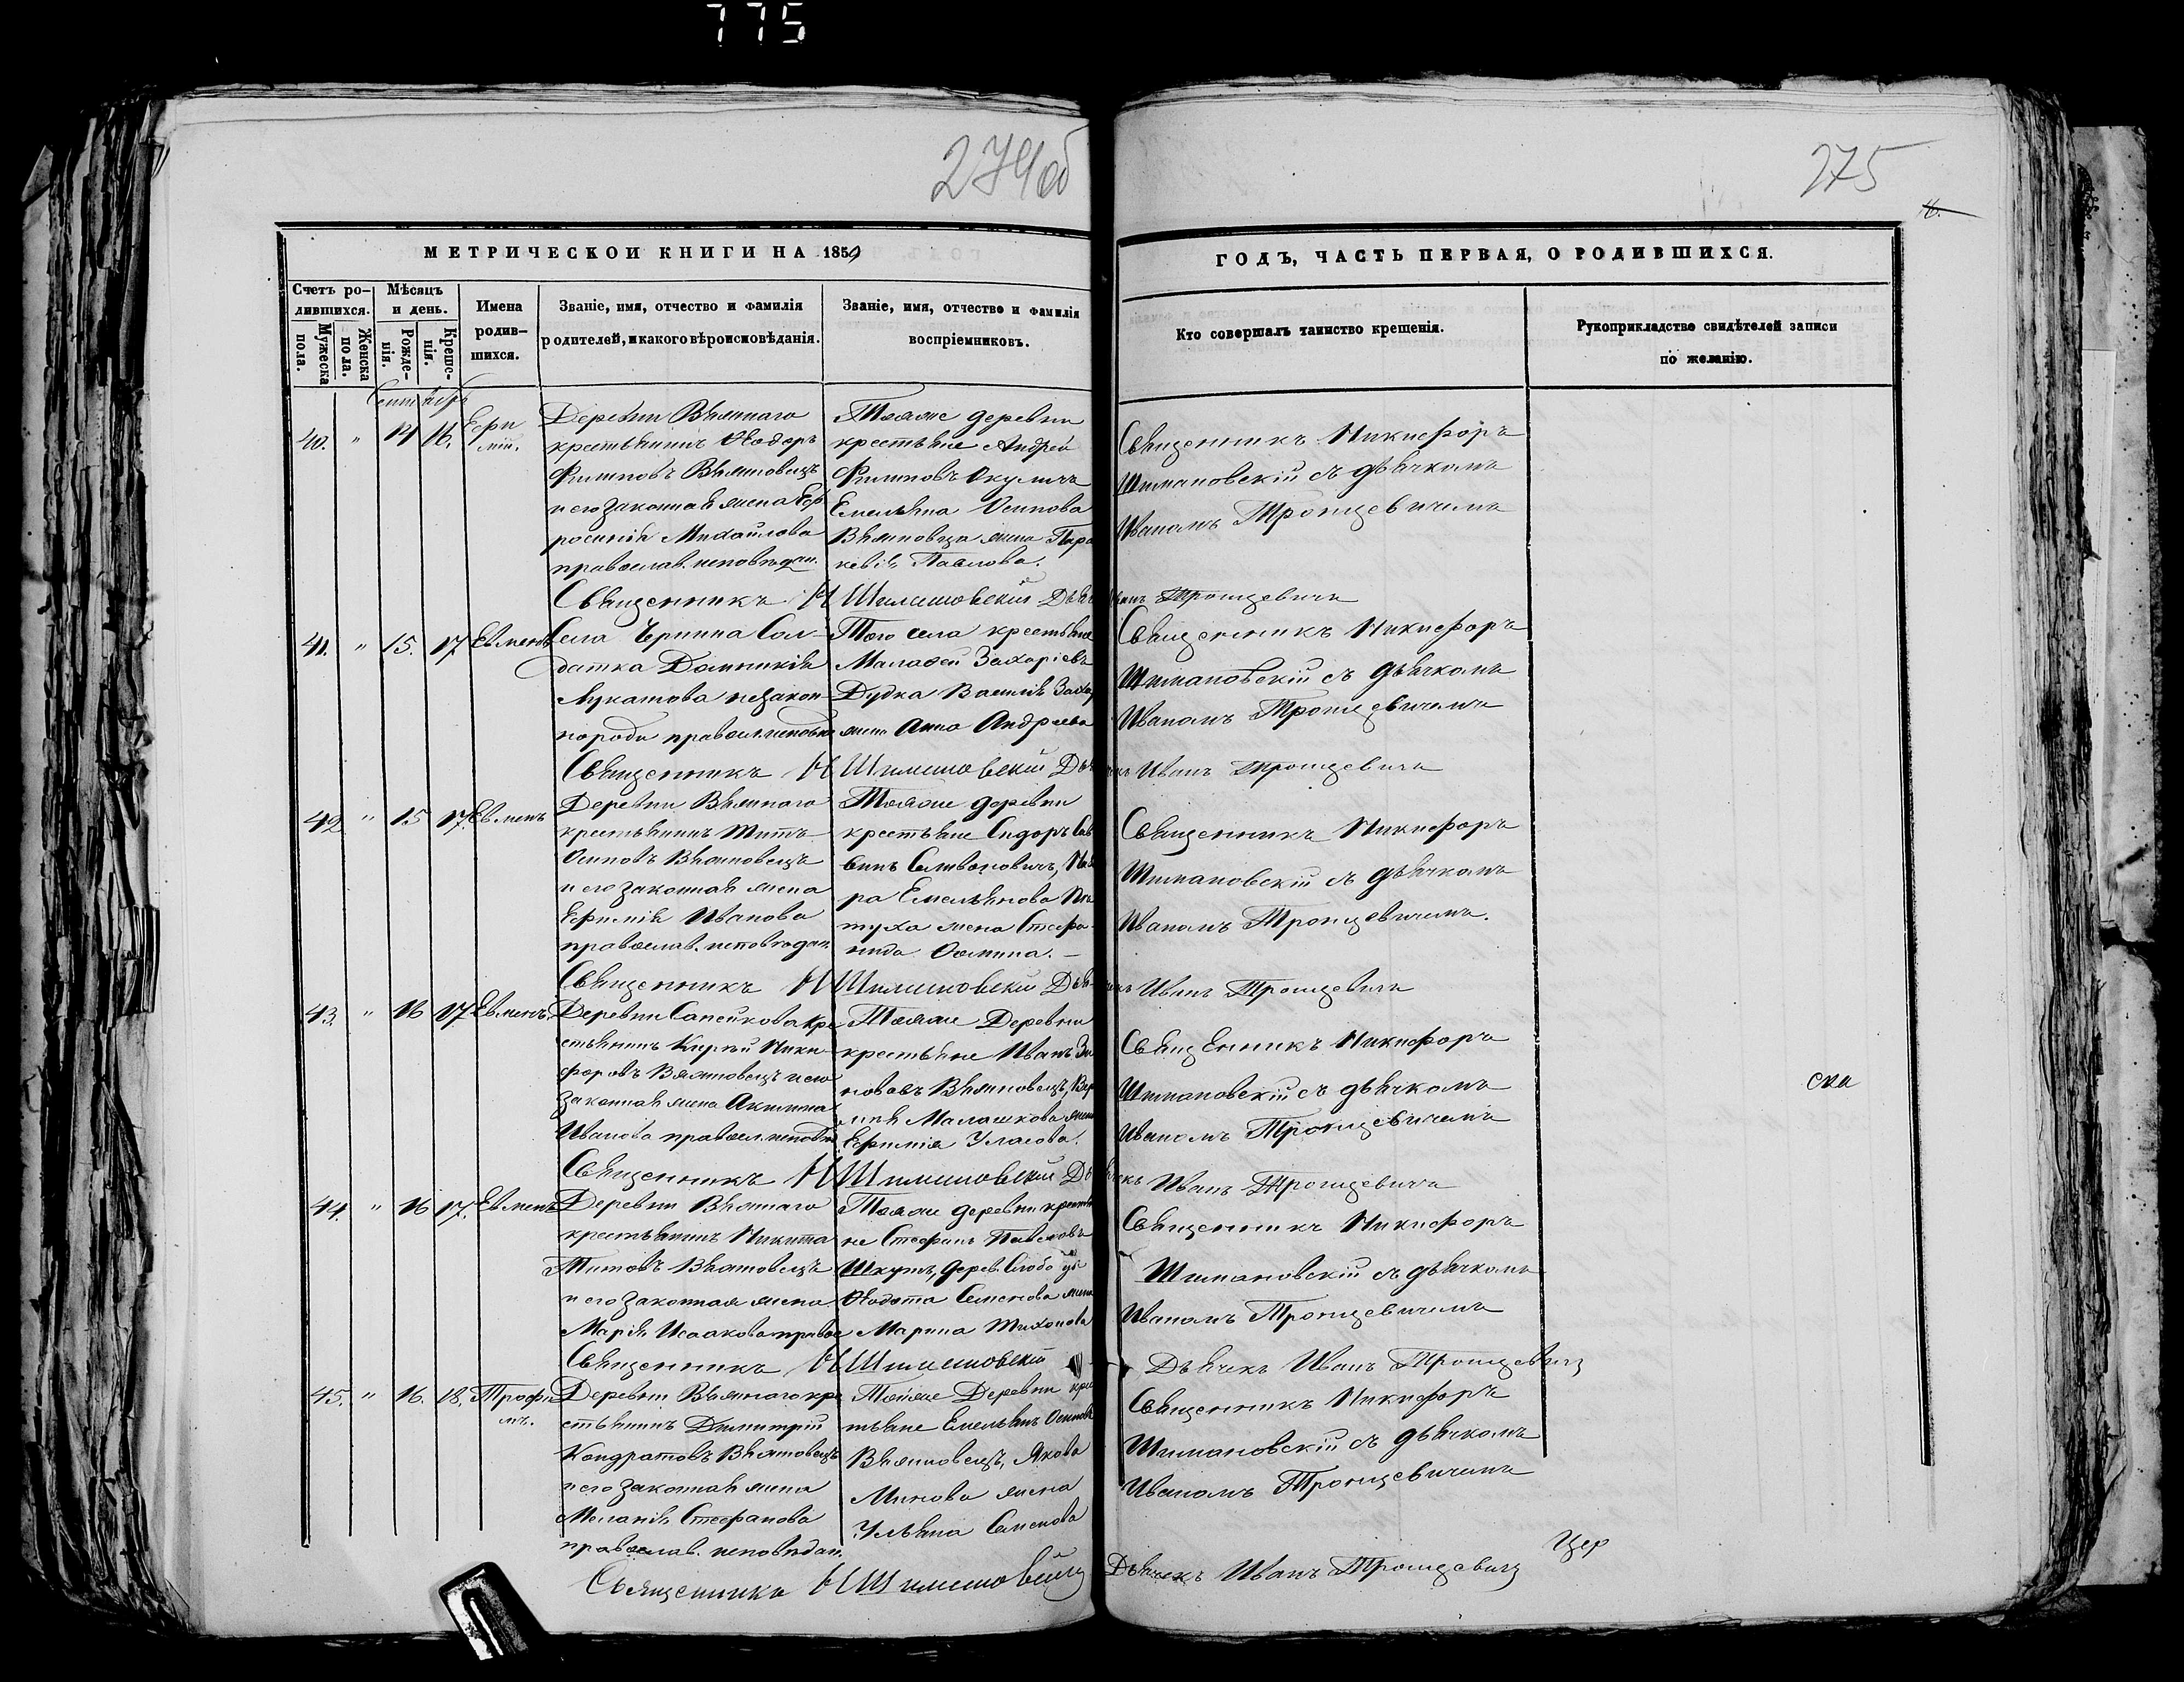 775
274об
275
МЕТРИЧЕСКОЙ КНИГИ НА 1859
ГОДЪ, ЧАСТЬ ПЕРВАЯ, О РОДИВШИХСЯ.
Счетъ родившихся.
Мужеска пола.
Женска пола.
Мѣсяцъ и день.
Рожденія.
Крещенія.
Имена родившихся.
Званіе, имя, отчество и фамилія
родителей, и какого вѣроисповѣданія.
Званіе, имя, отчество и фамилія
воспріемниковъ.
Кто совершалъ таинство крещенія.
Рукоприкладство свидѣтелей записи
по желанію.
Сентябрь
40. " 14 16.
Деревни Вяжнаго
крестьянинъ Ѳодоръ
Филиповъ Вяжновецъ
и его законная жена Еф
росинія Михайлова
православ. исповѣдан.
Тояже деревни
крестьяне Андрей
Филиповъ Окуличъ
Емельяна Осипова
Вяжновца жена Пара
кевія Павлова.
Священникъ Никифоръ
Шимановскій съ дьячкомъ
Иваномъ Троицевичемъ
Священникъ Н Шимановскій
Троицевичъ
41. " 15. 17 Евмень
Села Чернина Сол-
датка Домникія
Лукашова незакон-
Того села крестьяне
Малафей Захаріевъ
Дудка Василія
жена Анна Андреева
Священникъ Никифоръ
Шимановскій съ дьячкомъ
Иваномъ Троицевичемъ
Священникъ Н Шимановскій
Иванъ Троицевичъ
42 " 15 17. Евменъ
Деревни Вяжнаго
крестьянинъ Титъ
Осиповъ Вяжновецъ
и его законная жена
Ефимія Иванова
православ. исповѣдан.
Тояже деревни
крестьяне Сидоръ Сав
ра Емельянова
туха жена Стефа
нида Фомина.
Священникъ Никифоръ
Шимановскій съ дьячкомъ
Иваномъ Троицевичемъ.
Священникъ Н Шимановскій
Иванъ Троицевичъ
43. " 16 17 Евменъ.
Деревни Сапейкова кре
стьянинъ Кирѣй Ники-
форовъ Вяжновецъ и его
законная жена Акилина
Иванова православ. исповѣд
Тояже Деревни
крестьяне Иванъ
новъ Вяжновецъ,
Малашкова жена
Ефимія Уласова.
Священникъ Никифоръ
Шимановскій съ дьячкомъ
Иваномъ Троицевичемъ
ска
Священникъ Н Шимановскій
Иванъ Троицевичъ
44. " 16 17. Евменъ
Деревни Вяжнаго
крестьянинъ Никита
Титовъ Вяжновецъ
и его законная жена
Марія Исаакова правос
Тояже деревни крестья
не Стефанъ Павловъ
Шкутъ, дерев.
Ѳадота Семенова жена
Марина Тихонова
Священникъ Никифоръ
Шимановскій съ дьячкомъ
Иваномъ Троицевичемъ
Священникъ Н Шимановскій
Дьячекъ Иванъ Троицевичъ
45. " 16. 18. Трофи
мъ.
Деревни Вяжнаго кре
стьянинъ Димитрій
Кондратовъ Вяжновецъ
и его законная жена
Меланія Стефанова
православ. исповѣдан.
Тояже Деревни крес
тьяне Емельянъ Осиповъ
Вяжновецъ, Якова
Минова жена
Ульяна Семенова
Священникъ Никифоръ
Шимановскій съ дьячкомъ
Иваномъ Троицевичемъ
Цер
Священникъ Н Шимановскій
Дьячекъ Иванъ Троицевичъ